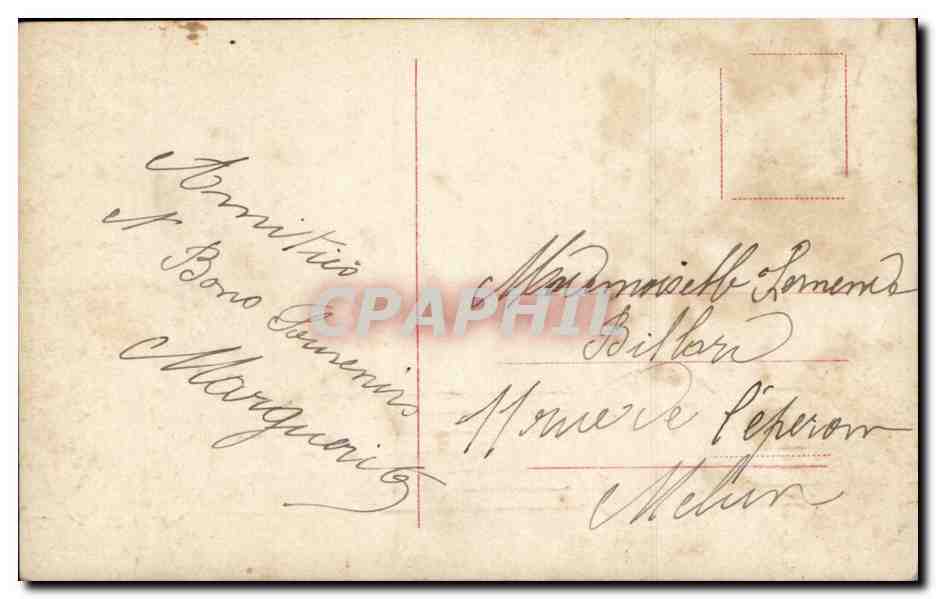 Amitiés
& Bons Souvenirs
Marguerite
Mademoiselle
Billard
11 rue de l'éperon
Melun
CPAPHIL